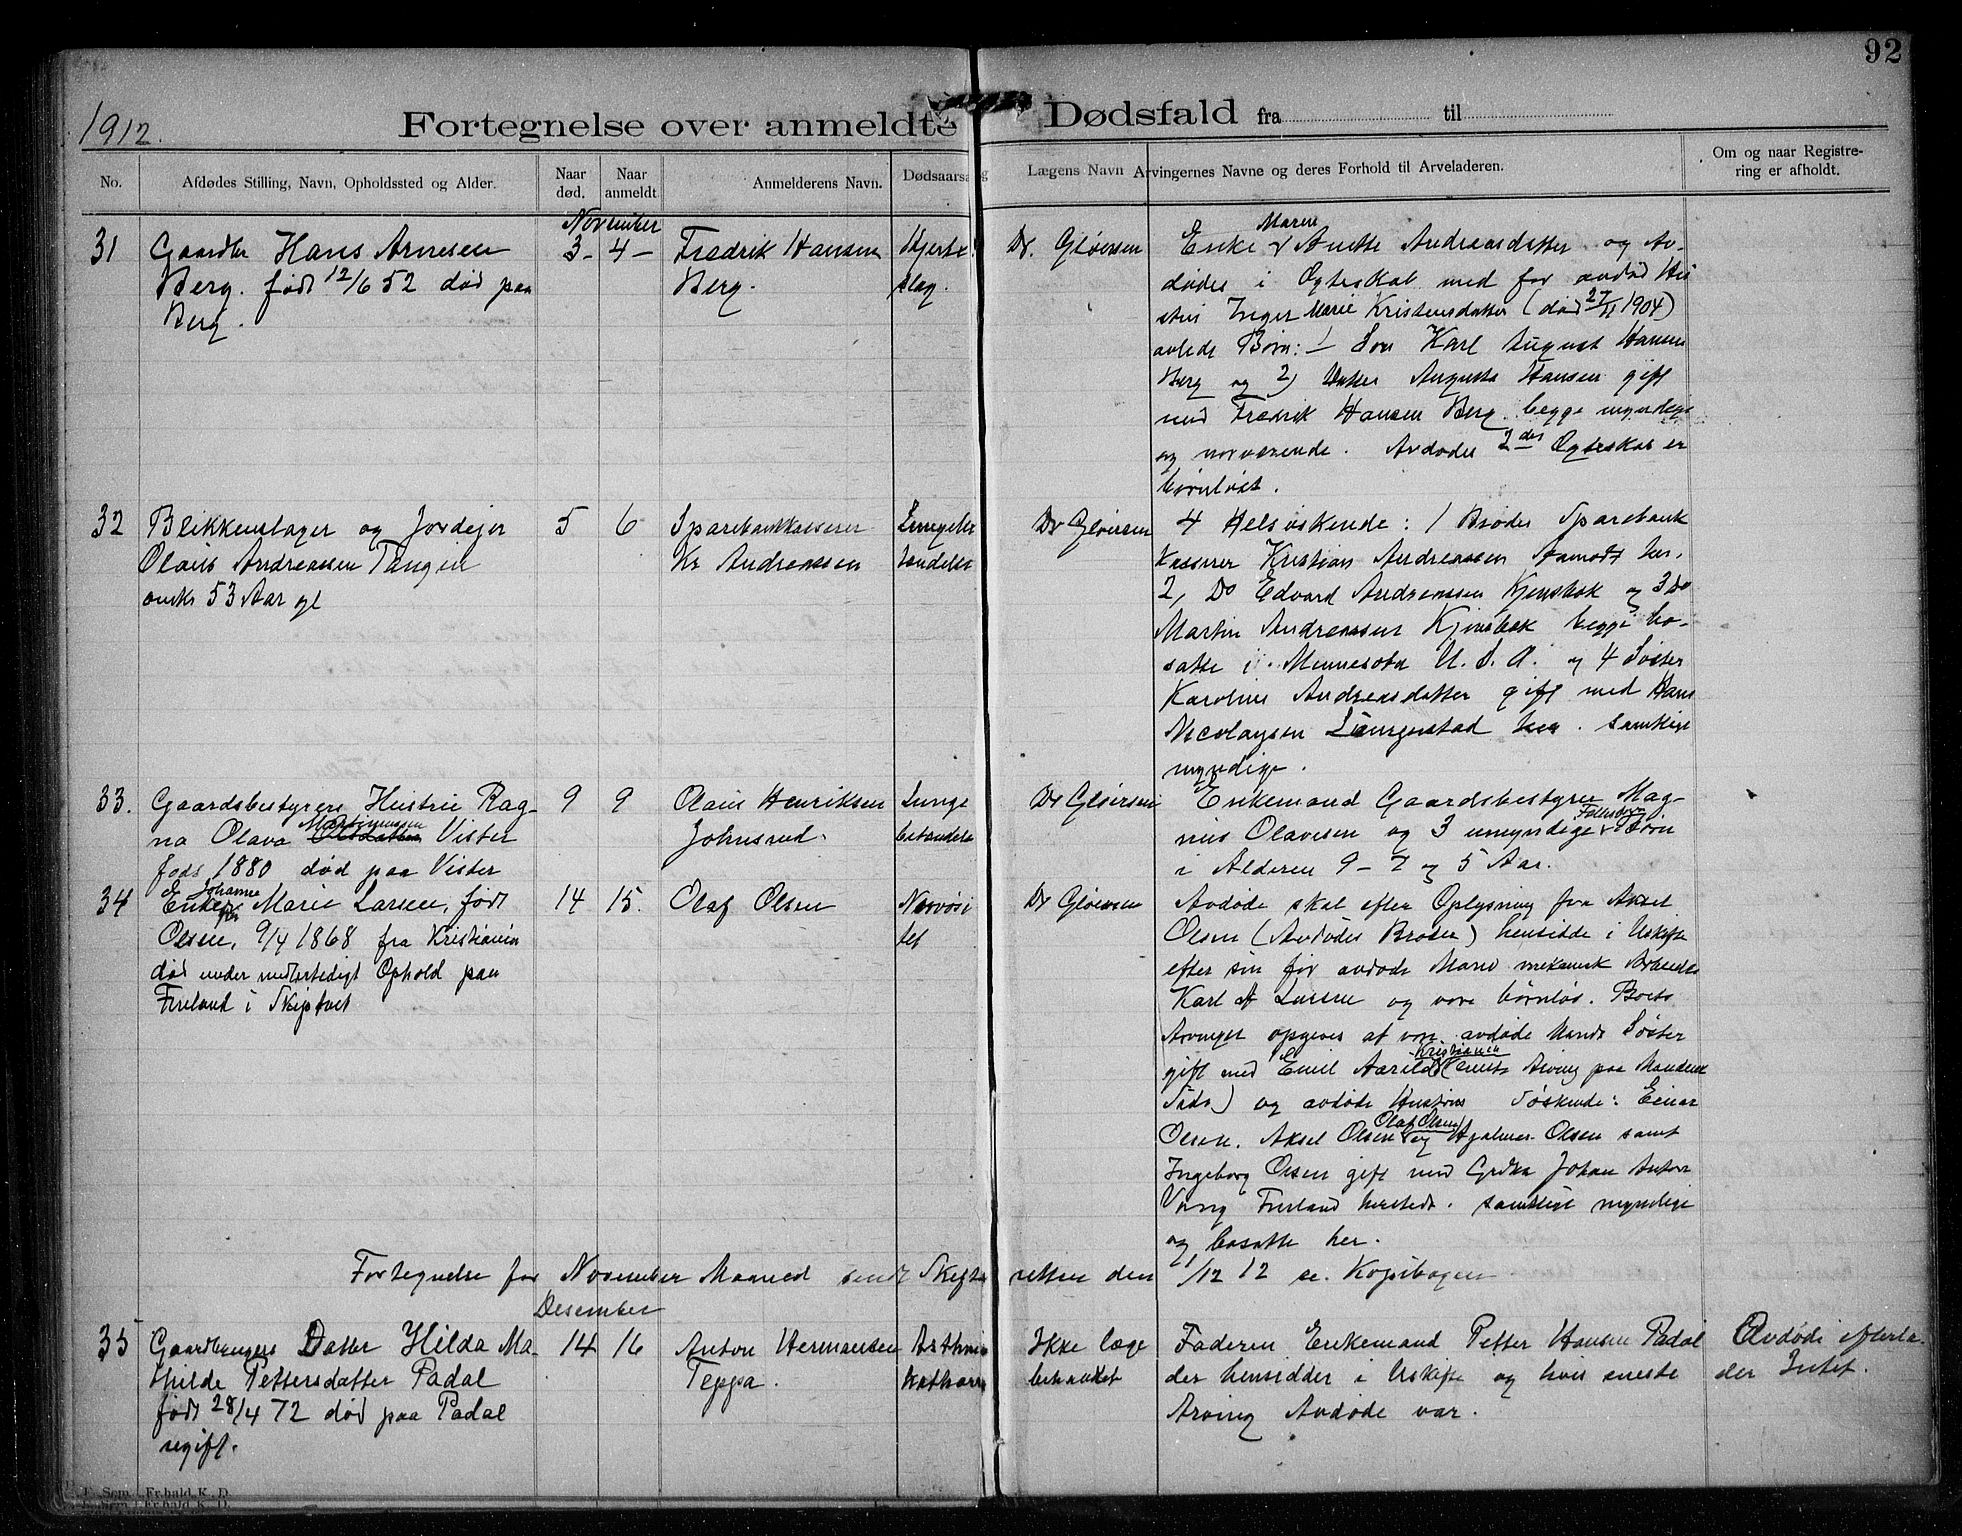 92
1912.
Fortegnelse over anmeldte Dødsfald fra til
No.
Afdødes Stilling, Navn, Opholdssted og Alder.
Naar død.
Naar anmeldt
Anmelderens Navn.
Dødsaarsag
Lægens Navn
Arvingernes Navne og deres Forhold til Arveladeren.
Om og naar Registrering er afholdt.
November
31
Gaardbr Hans Arnesen
Berg. født 12/6 52 død paa
Berg.
3 - 4 -
Fredrik Hansen
Berg.
Hjerte
slag.
Dr. Gløersen
Maren
Enke v Anette Andreasdatter og Av-
dødes i Egteskab med før avdød Hu
stru Inger Marie Kristensdatter (død 27/11 1904)
avlede Børn: 1 Søn Karl August Hansen
Berg og 2) Datter Augusta Hansen gift
med Fredrik Hansen Berg. begge myndige
og nærværende. Avdødes 2det Egteskab er
børnløst.
32
Blikkenslager og Jordejer
Olaus Andreassen Tangen
53 Aar gl
5 6
Sparebankkasserer
Kr Andreassen
Lungebe
tændelse
Dr Gløersen
4 Helsøskende: 1 Broder Sparebank
kasserer Kristian Andreassen her.
2, Do Edvard Andreassen Kjensbak og 3 Do
Martin Andreassen Kjensbak begge bo-
satte i Minnesota U. S. A. og 4 Søster
Karoline Andreasdatter gift med Hans
Nicolaysen her. samtlige
myndige.
33.
Gaardsbestyrers Hustru Rag-
Martinussen
na Olava Vister
født 1880 død paa Vister
9 9
Olaus Henriksen
Johnsrud.
Lunge
betændelse
Dr Gløersen
Enkemand Gaardsbestyrer Mag-
Fælles
nus Olavesen og 3 umyndige v Børn
i Alderen 9 - 7 og 5 Aar.
34
Johanne
Enkefru Marie Larsen, født
Olsen, 9/4 1868 fra Kristiania
død under midlertidigt Ophold paa
Furland i Skiptvet
14 15.
Olaf Olsen
Nervøsi
tet
Dr Gløersen
Avdøde skal efter Oplysning fra Aksel
Olsen (Avdødes Broder) hensidde i Uskifte
efter sin før avdøde Mand mekanisk Arbeider
Karl A Larsen og vare børnløs. Boets
Arvinger opgives at være avdøde Mands Søster
Kristiania
gift med Emil (eneste Arving paa Mandens
Side) og avdøde Hustrus Søskende: Einar
Olaf Olsen
Olsen. Aksel Olsen v og Hjalmar Olsen samt
Ingeborg Olsen gift med Grdbr Johan Anton
Furland herstedt. samtlige myndige
og bosatte her.
Fortegnelse for November Maaned sendt Skifteretten den 1/12 12 se. Kopibogen
Desember
35
Gaardbrugers Datter Hilda Ma-
thilde Pettersdatter Padal
født 28/4 72 død paa Padal
ugift.
14 16
Anton Hermansen
Teppa.
Asthma
Katharr
Ikke læge
behandlet
Faderen Enkemand Petter Hansen Padal
der hensidder i Uskifte og hvis eneste
Arving Avdøde var.
Avdøde efterla-
der Intet.
F. Sem. Fr.hald. K. D.